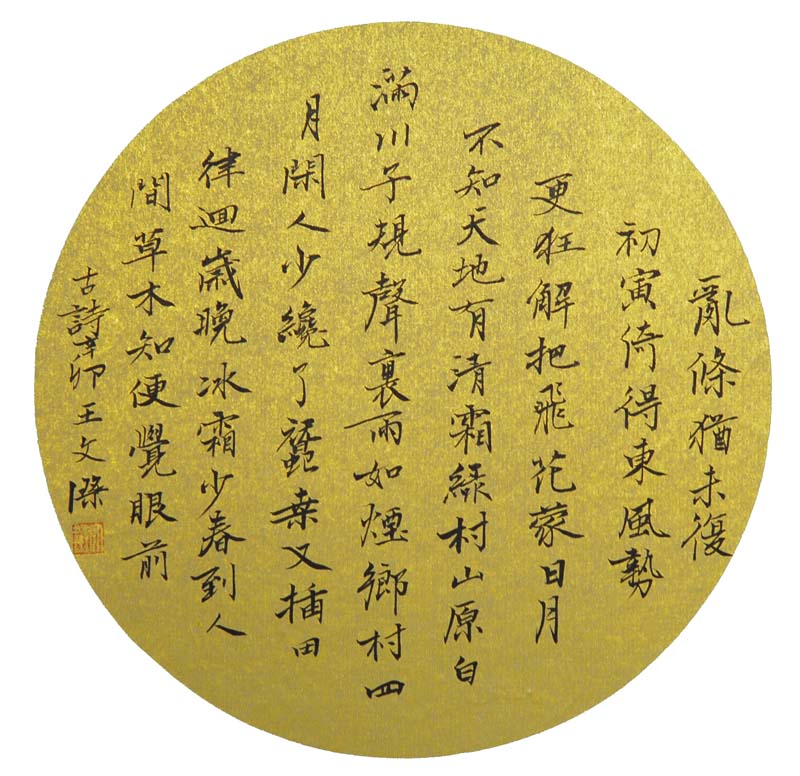 亂條猶未復
初寅倚得東風勢
更狂解把飛花蒙日月
不知天地有清霜綠村山原白
滿川子規聲裏雨如煙鄉村四
月閑人少纔了蠶桑又插田
律迴歲晚冰霜少春到人
間草木知便覺眼前
古詩辛卯王文